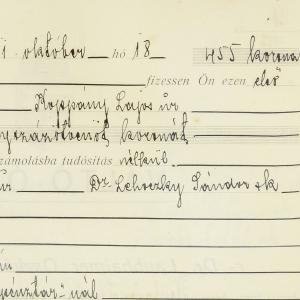 október hó 18 455 korona
fizessen Ön ezen első
Koppány Lajos úr
százötvenöt koronát
számolásba tudósítás nélkül.
úr Dr. Lehoczky Sándor és k
pénztár"-nál